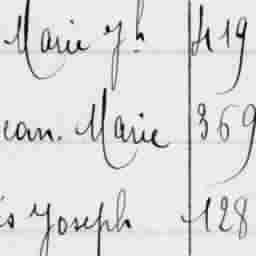 Marie Jh 419
ean. Marie 369
is Joseph 128